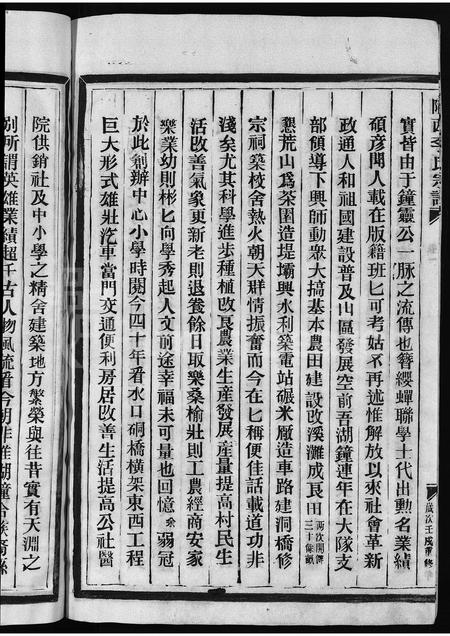 隴西李氏宗譜
歲次壬戌重修
實皆由于鐘靈公一脈之流傳也簪纓蟬聯學士代出勳名業績
碩彥聞人載在版籍班匕可考姑不再述惟解放以來社會革新
政通人和祖國建設普及山區發展空前吾湖鐘連年在大隊支
部領導下興師動眾大搞基本農田建設改溪灘成良田兩次開溪三十餘畝
懇荒山爲茶園造堤壩興水利築電站碾米厰造車路建洞橋修
宗祠築校舍熱火朝天群情振奮而今在匕稱便佳話載道功非
淺矣尤其科學進步種植改良農業生產發展產量提高村民生
活改善氣象更新老則退養餘日取樂桑榆壯則工農經商安家
樂業幼則彬匕向學秀起人文前途幸福未可量也回憶余弱冠
於此創辦中心小學時閱今四十年看水口硐橋橫架東西工程
巨大形式雄壯汽車當門交通便利房居改善生活提高公社醫
院供銷社及中小學之精舍建築地方繁榮與往昔實有天淵之
別所謂英雄業績超千古人物風流看今朝非唯湖鐘合族裔孫